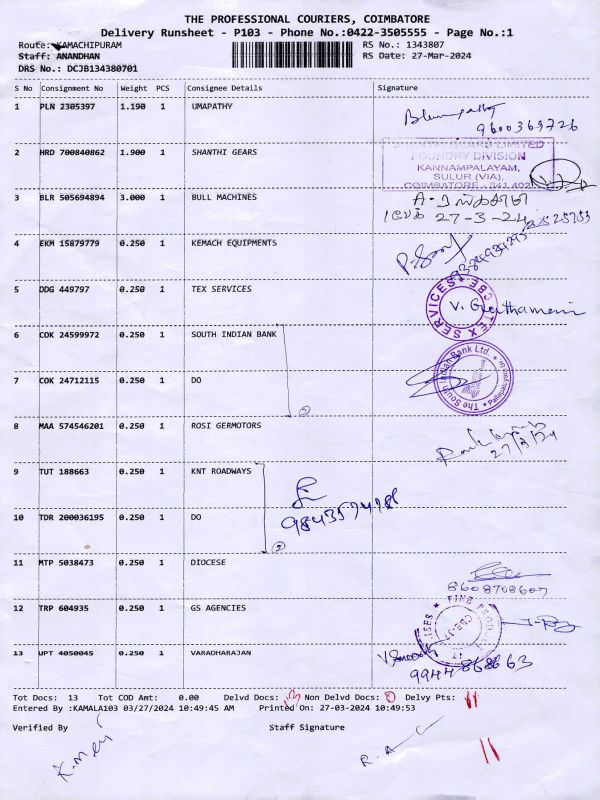 THE PROFESSIONAL COURIERS, COIMBATORE
Delivery Runsheet - P103 - Phone No.:0422-3505555 - Page No.:1
Route: KAMACHIPURAM RS No.: 1343807
Staff: ANANDHAN RS Date: 27-Mar-2024
DRS No.: DCJB134380701
S No Consignment No Weight PCS Consignee Details Signature
1 PLN 2305397 1.190 1 UMAPATHY
9600369726
2 HRD 700840862 1.900 1 SHANTHI GEARS
LIMITED
FOUNDRY DIVISION
KANNAMPALAYAM,
SULUR (VIA),
COIMBATORE - 641 402
3 BLR 505694894 3.000 1 BULL MACHINES
27-3-24
4 EKM 15879779 0.250 1 KEMACH EQUIPMENTS
5 DDG 449797 0.250 1 TEX SERVICES
TEX SERVICES CBE
6 COK 24599972 0.250 1 SOUTH INDIAN BANK
The South Indian Bank Ltd.
7 COK 24712115 0.250 1 DO
8 MAA 574546201 0.250 1 ROSI GERMOTORS
27/3/24
9 TUT 188663 0.250 1 KNT ROADWAYS
10 TDR 200036195 0.250 1 DO
11 MTP 5038473 0.250 1 DIOCESE
8608708607
12 TRP 604935 0.250 1 GS AGENCIES
13 UPT 4050045 0.250 1 VARADHARAJAN
9944868663
Tot Docs: 13 Tot COD Amt: 0.00 Delvd Docs: 13 Non Delvd Docs: 0 Delvy Pts: 11
Entered By :KAMALA103 03/27/2024 10:49:45 AM Printed On: 27-03-2024 10:49:53
Verified By Staff Signature
11